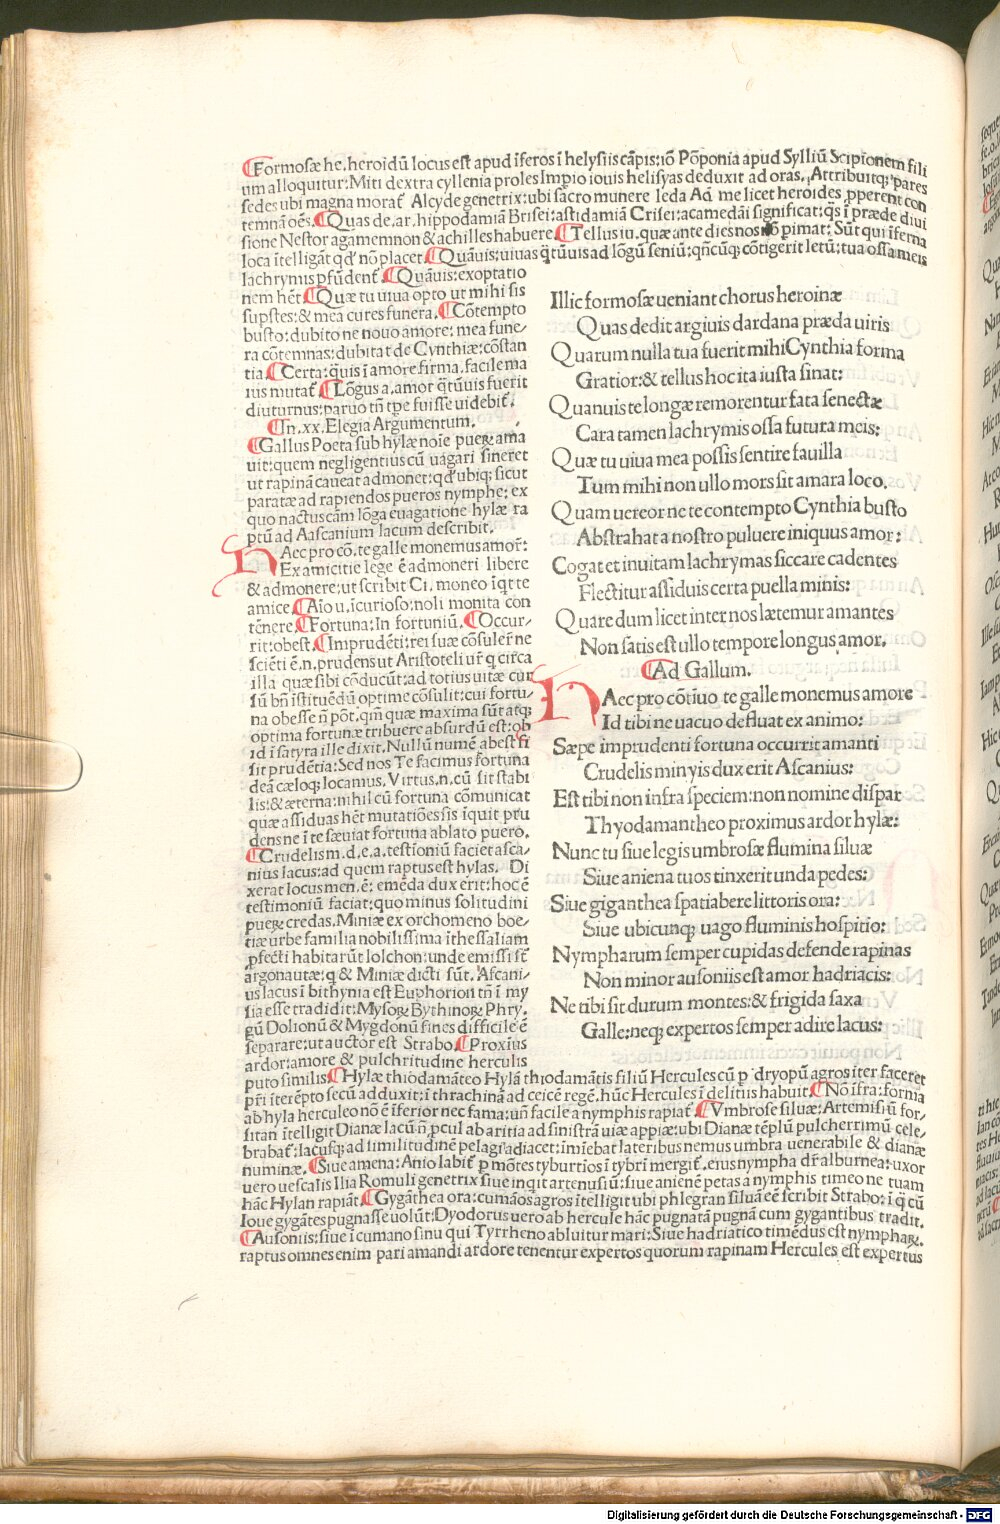 ¶Formosæ he. heroidū locus est apud īferos ī helysiis cāpis: iō Pōponia apud Sylliū Scipionem fili
um alloquitur: Miti dextra cyllenia proles Impio iouis helisyas deduxit ad oras. Attribuitq; pares
sedes ubi magna morat̄ Alcyde genetrix: ubi sacro munere leda Ad me licet heroides pperent con
temnā oēs. ¶Quas de. ar. hippodamiā Brisei: astidamiā Crisei: acamedāi significat: q̄s ī præde diui
sione Nestor agamemnon & achilles habuere. ¶Tellus iu. quæ ante dies nos nō p̄imat: Sūt qui īferna
loca ītelligāt qd' nō placet ¶Quāuis: uiuas q̄tūuis ad lōgū seniū: qn̄cūq; cōtigerit letū: tua ossa meis
lachrymis pfūdent̄ ¶Quāuis: exoptatio
nem hēt ¶Quæ tu uiua opto ut mihi sis
supstes: & mea cures funera. ¶Cōtempto
busto: dubito ne nouo amore: mea fune/
ra cōtemnas: dubitat de Cynthiæ: cōstan
tia. ¶Certa: q̄uis ī amore firma, facile ma
ius mutat̄ ¶Lōgus a. amor q̄tūuis fuerit
diuturnus: paruo tn̄ tpe fuisse uidebit̄.
¶In. xx. Elegia Argumentum.
¶Gallus Poeta sub hylæ noīe pueꝝ ama
uit: quem negligentius cū uagari sineret
ut rapinā caueat admonet: qd' ubiq; sicut
paratæ ad rapiendos pueros nymphe: ex
quo nactus cām lōga euagatione hylæ ra
ptū ad Aascanium lacum describit.
HAec pro cō. te galle monemus amor̄:
Ex amicitie lege ē admoneri libere
& admonere: ut scribit Ci. moneo īqt te
amice. ¶Aio u. īcurioso: noli monita con
tēnere. ¶Fortuna: In fortuniū. ¶Occur/
rit: obest. ¶Imprudēti: rei suæ cōsulerne
sciēti ē. n. prudens ut Aristoteli uī q circa
illa quæ sibi cōducūt: ad totius uitæ cur
sū bn̄ īstituēdū optime cōsulit: cui fortu/
na obesse n̄ pōt. qm̄ quæ maxima sūt atq;
optima fortunæ tribuere absurdū est: ob
id ī satyra ille dixit. Nullū numē abest si
sit prudētia: Sed nos Te facimus fortuna
deā cæloq; locamus. Virtus. n. cū sit stabi
lis: & æterna: nihil cū fortuna cōmunicat
quæ assiduas hēt mutatiōes sis īquit pru
dens ne ī te sæuiat fortuna ablato puero.
¶Crudelis m. d. e. a. testioniū faciet asca/
nius lacus: ad quem raptus est hylas. Di
xerat locus men. ē: emēda dux erit: hoc ē
testimoniū faciat: quo minus solitudini
pueꝝ credas. Miniæ ex orchomeno boe/
tiæ urbe familia nobilissima ī thessaliam
pfecti habitarūt Iolchon: unde emissi st̄
argonautæ: q & Miniæ dicti sūt. Ascani/
us lacus ī bithynia est Euphorion tn̄ ī my
sia esse tradidit: Mysoꝝ Bythinoꝝ Phry.
gū Dolionū & Mygdonū fines difficile ē
separare: ut auctor est Strabo. ¶Proxius
ardor: amore & pulchritudine herculis
puto similis. ¶Hylæ thiodamāteo Hylā thiodamātis filiū Hercules cū p dryopū agros iter faceret
pr̄i īterēpto secū adduxit: ī thrachinā ad ceicē regē. hūc Hercules ī delitiis habuit. ¶Nō īfra: formā
ab hyla herculeo nō ē īferior nec fama: un̄ facile a nymphis rapiat̄. ¶Vmbrosæ siluæ: Artemisiū for/
sitan ītelligit Dianæ lacū n̄ pcul ab aritia ad sinistrā uiæ appiæ: ubi Dianæ tēplū pulcherrimū cele/
brabat̄: lacusq; ad similitudinē pelagi adiacet: imīebat lateribus nemus umbra uenerabile & dianæ
numinæ. ¶Siue amena: Anio labit̄ p mōtes tyburtios ī tybrī mergit̄. eius nympha dr̄ alburnea: uxor
uero uescalis Ilia Romuli genetrix siue inqit artenusiū: siue anienē petas a nymphis timeo ne tuam
hāc Hylan rapiāt. ¶Gygāthea ora: cumāos agros ītelligit ubi phlegran siluā eē scribit Strabo: ī q cū
Ioue gygātes pugnasse uolūt: Dyodorus uero ab hercule hāc pugnatā pugnā cum gygantibus tradit.
¶Ausoniis: siue ī cumano sinu qui Tyrrheno abluitur mari: Siue hadriatico timēdus est nymphaꝝ.
raptus omnes enim pari amandi ardore tenentur expertos quorum rapinam Hercules est expertus
Illic formosæ ueniant chorus heroinæ
Quas dedit argiuis dardana præda uiris
Quarum nulla tua fuerit mihi Cynthia forma
Gratior: & tellus hoc ita iusta sinat:
Quanuis te longæ remorentur fata senectæ
Cara tamen lachrymis ossa futura meis:
Quæ tu uiua mea possis sentire fauilla
Tum mihi non ullo mors sit amara loco.
Quam uereor ne te contempto Cynthia busto
Abstrahat a nostro puluere iniquus amor:
Cogat et inuitam lachrymas siccare cadentes
Flectitur assiduis certa puella minis:
Quare dum licet inter nos lætemur amantes
Non satis est ullo tempore longus amor.
¶Ad Gallum.
HAec pro cōtiuo te galle monemus amore
Id tibi ne uacuo defluat ex animo:
Sæpe imprudenti fortuna occurrit amanti
Crudelis minyis dux erit Ascanius:
Est tibi non infra speciem: non nomine dispar
Thyodamantheo proximus ardor hylæ:
Nunc tu siue legis umbrosæ flumina siluæ
Siue aniena tuos tinxerit unda pedes:
Siue giganthea spatiabere littoris ora:
Siue ubicunq; uago fluminis hospitio:
Nympharum semper cupidas defende rapinas
Non minor ausoniis est amor hadriacis:
Ne tibi sit durum montes: & frigida saxa
Galle: neq; expertos semper adire lacus:
Digitalisierung gefördert durch die Deutsche Forschungsgemeinschaft - DFG